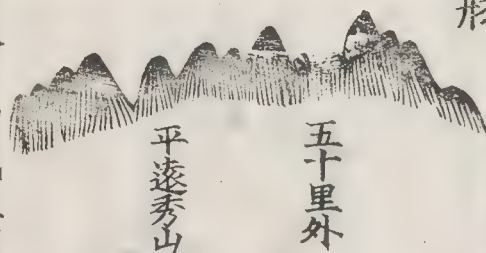 五十里外
平遠秀山